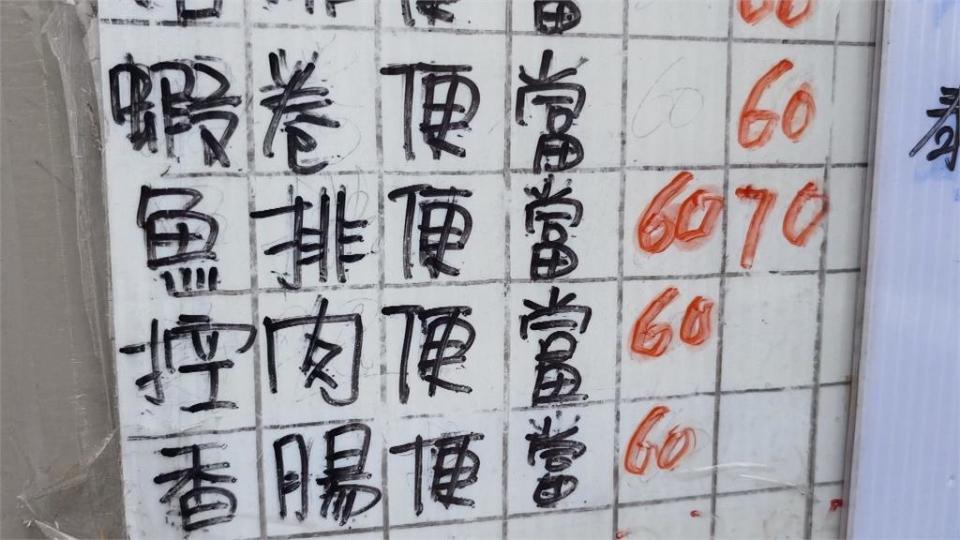 排便當 60
蝦卷便當 60 60
魚排便當 60 70
控肉便當 60
香腸便當 60